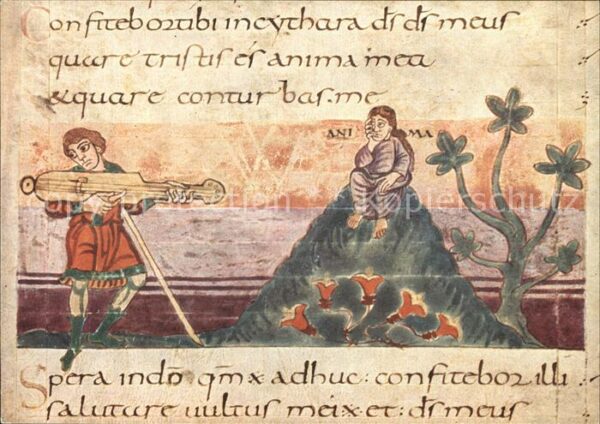 Confitebor tibi in cythara d̄s d̄s meus
quare tristis es anima mea
&quare conturbas me
ANI MA
kopierschutz
Spera in dō qm̄ adhuc: confitebor illi
salutare uultus mei et: d̄s meus